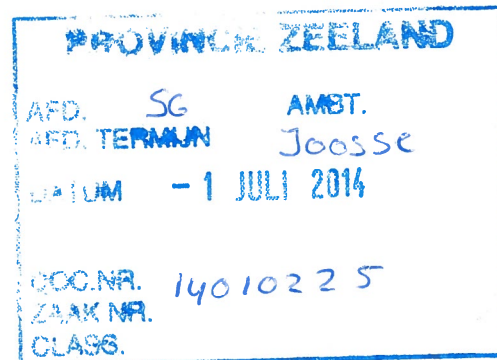 PROVINCIE ZEELAND
AFD. SG AMBT.
AFD. TERMIJN Joosse
DATUM - 1 JULI 2014
DOC.NR. 14010225
ZAAK NR.
CLASS.